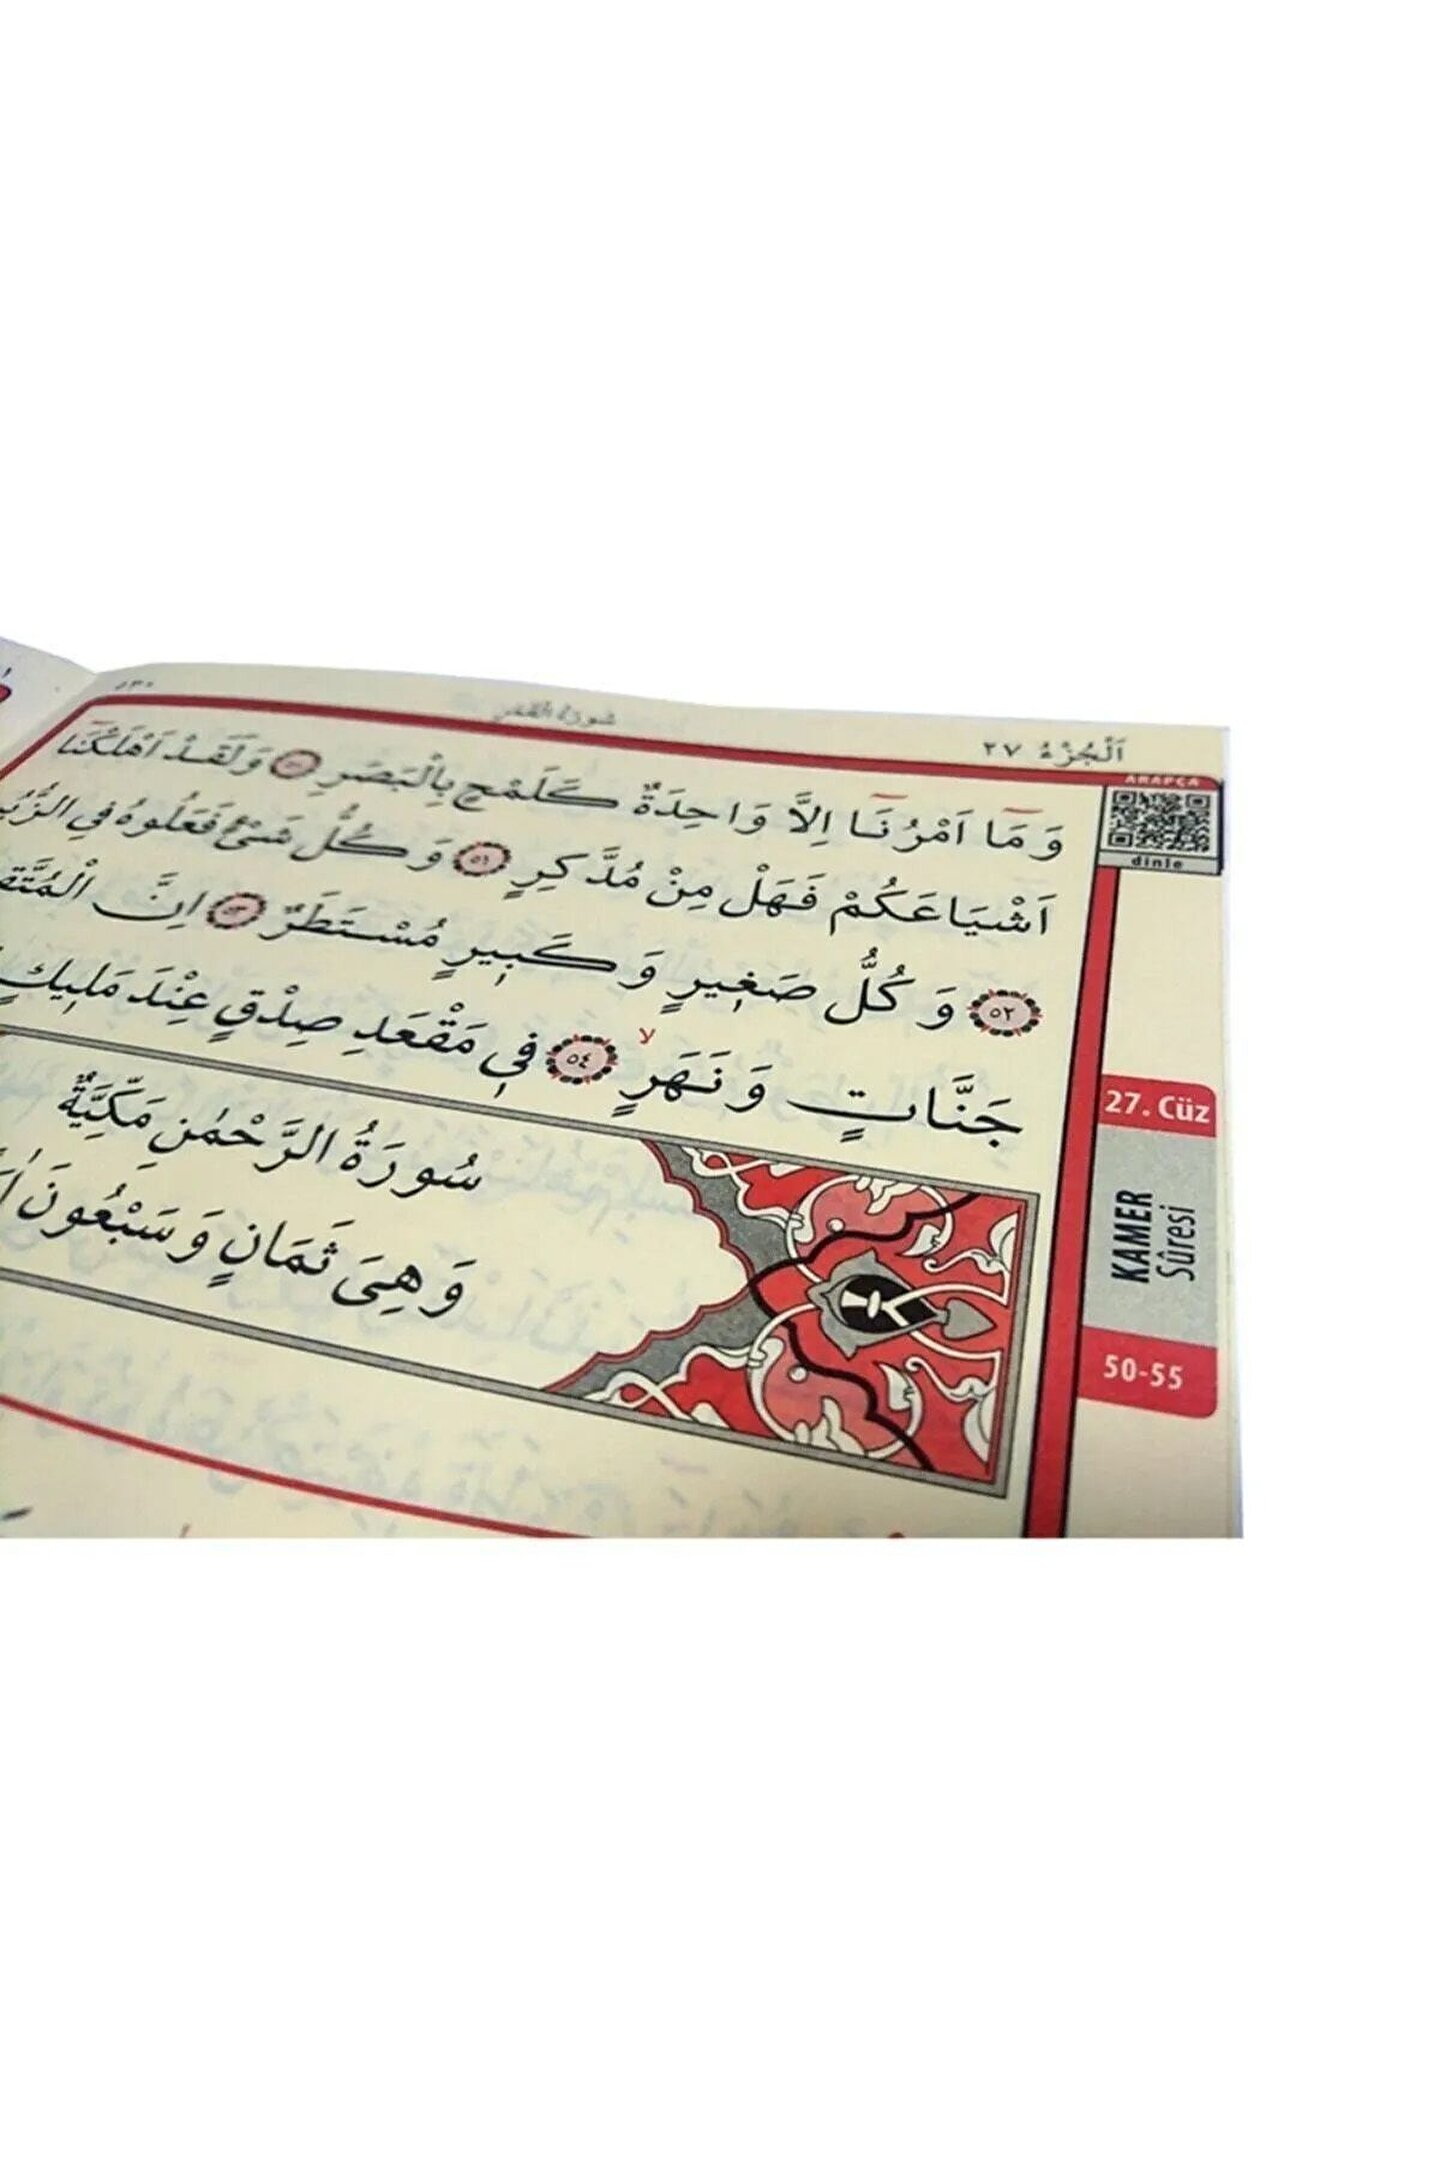 ٥٣٠
سُورَةُ الْقَمَرِ
اَلْجُزْءُ ٢٧
ARAPÇA
dinle
وَمَٓا اَمْرُنَٓا اِلَّا وَاحِدَةٌ كَلَمْحٍ بِالْبَصَرِ ٥٠ وَلَقَدْ اَهْلَكْنَٓا
اَشْيَاعَكُمْ فَهَلْ مِنْ مُدَّكِرٍ ٥١ وَكُلُّ شَيْءٍ فَعَلُوهُ فِي
٥٢ وَكُلُّ صَغٖيرٍ وَكَبٖيرٍ مُسْتَطَرٌ ٥٣ اِنَّ
جَنَّاتٍ وَنَهَرٍۙ ٥٤ فٖي مَقْعَدِ صِدْقٍ عِنْدَ مَلٖيكٍ
سُورَةُ الرَّحْمٰنِ مَكِّيَّةٌ
وَهِيَ ثَمَانٍ وَسَبْعُونَ
27. Cüz
KAMER
Sûresi
50-55